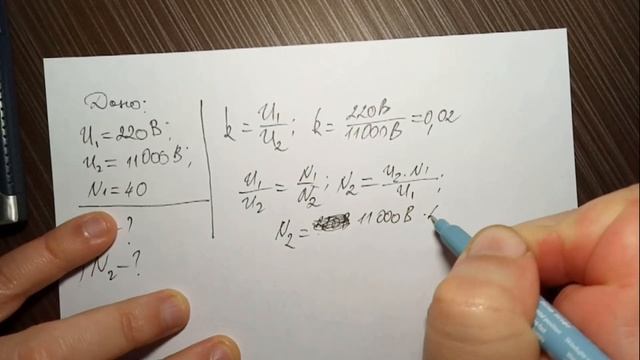 Дано:
U₁ = 220В;
U₂ = 11000В;
N₁ = 40
- ?
N₂ - ?
k = U₁/U₂; k = 220В/11000В = 0,02
U₁/U₂ = N₁/N₂; N₂ = U₂·N₁/U₁;
N₂ = 11000В ·